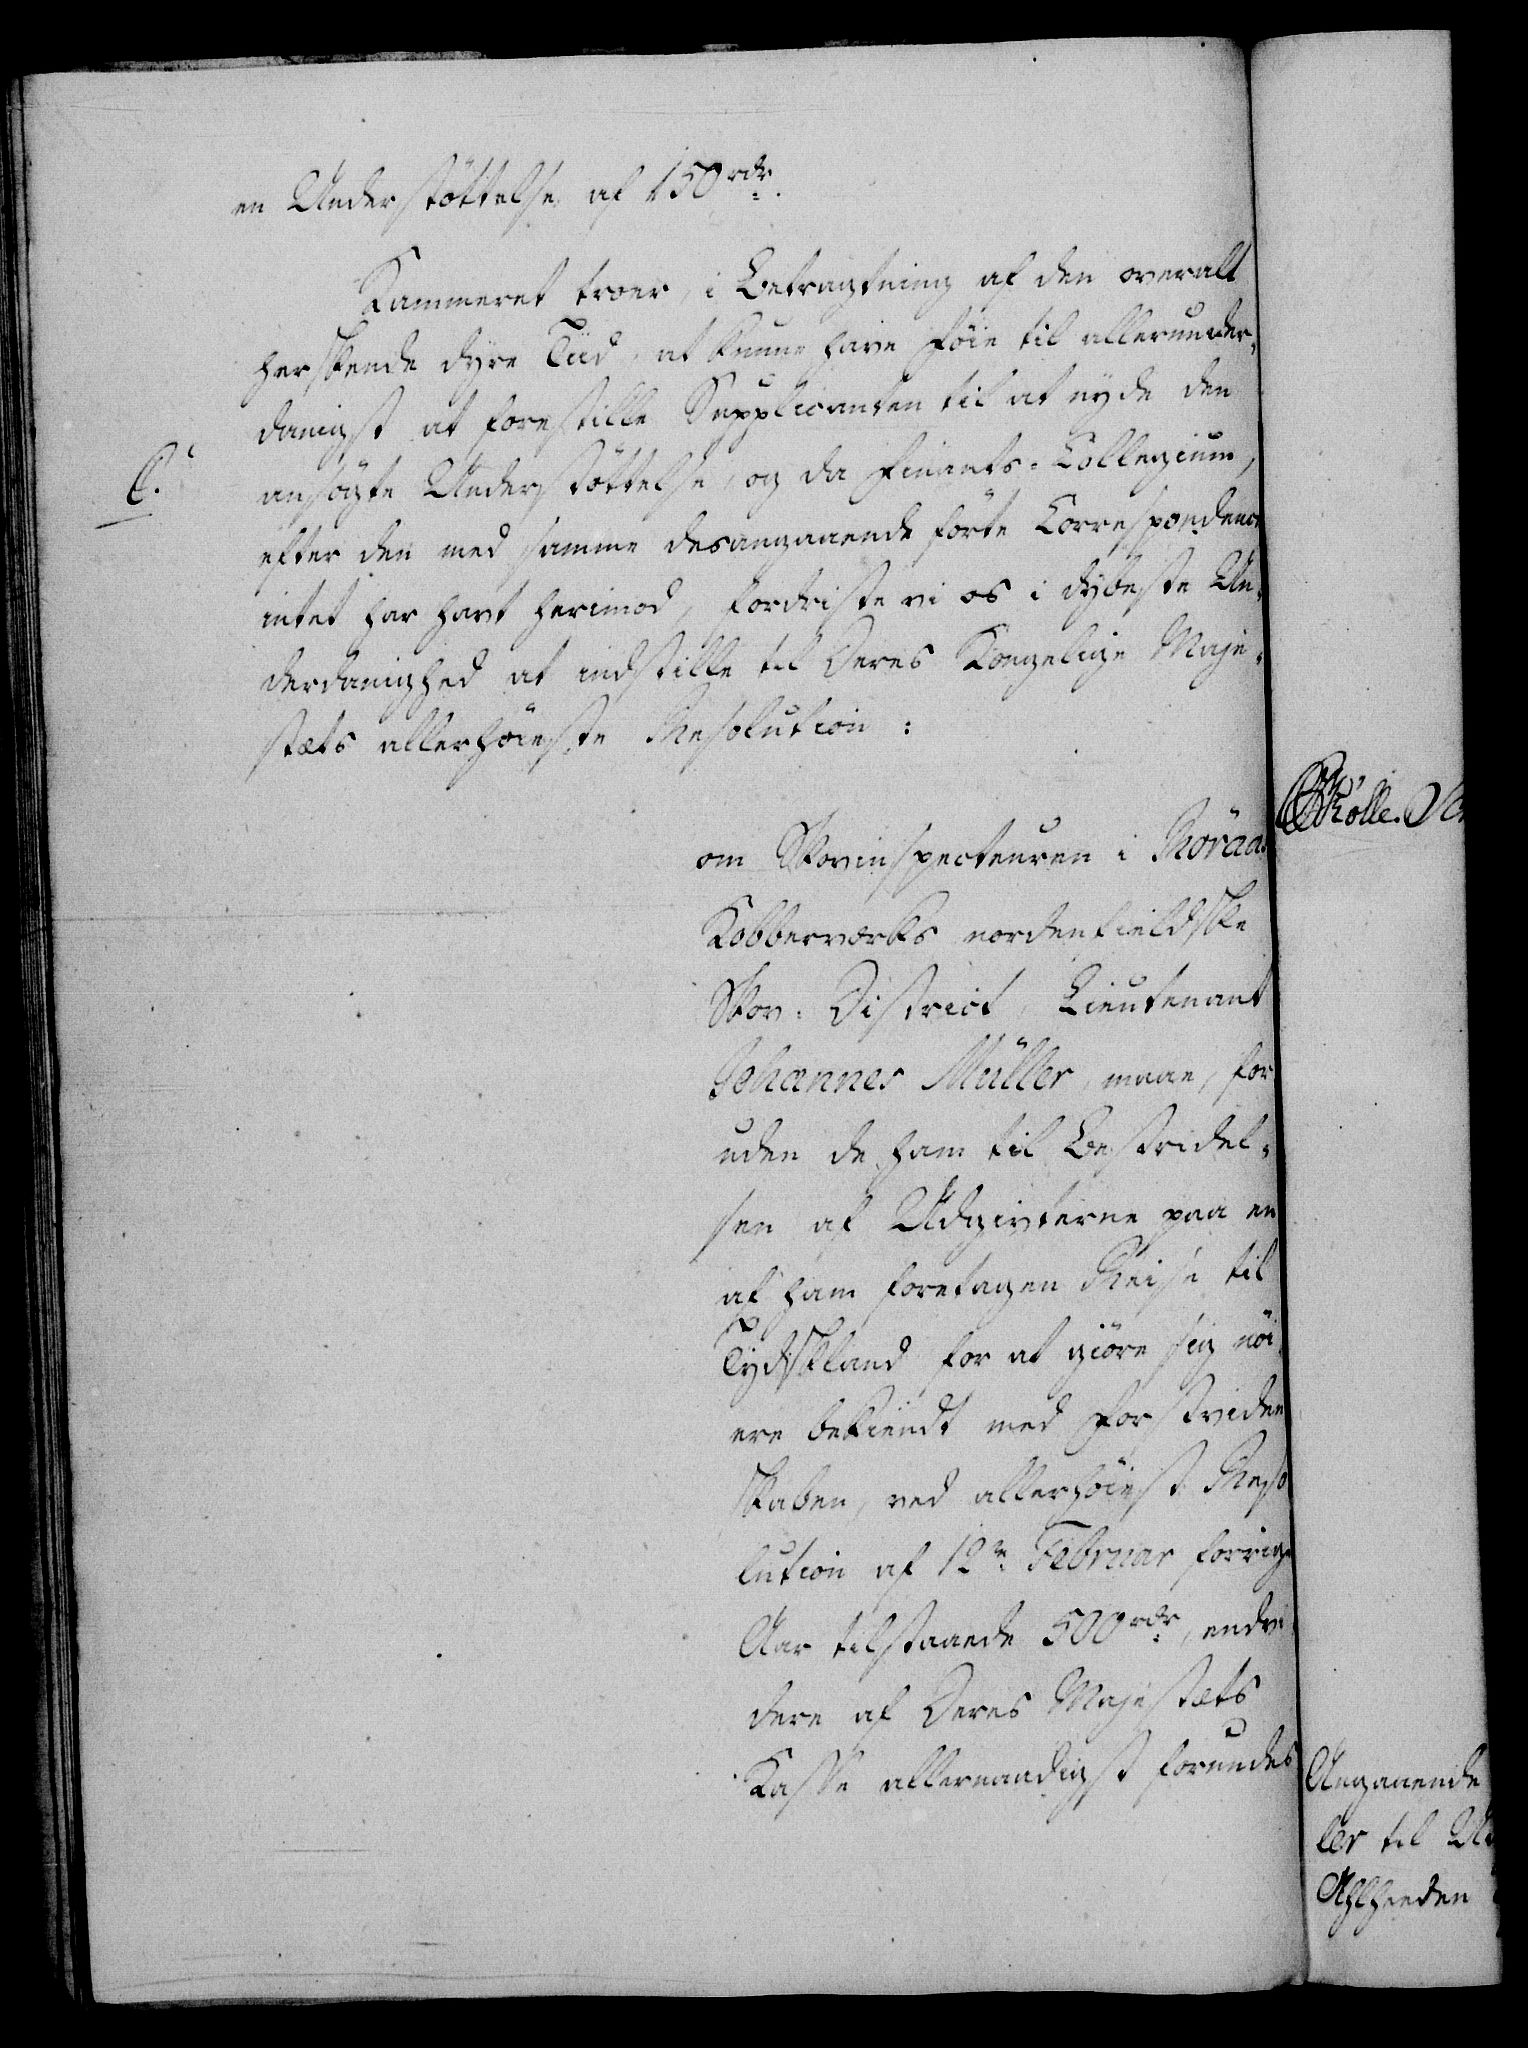 en Understöttelse af 150 rdr.
Kammeret troer, i Betragtning af den overalt
herskende dyre Tiid, at kunne have Föie til allerunder-
danigst at forestille Supplicanten til at nyde den
C.
ansögte Understöttelse, og da Finants-Collegium,
efter den med samme desangaaende förte Correspondence
intet har havt herimod, fordriste vi os i dybeste Un-
derdanighed at indstille til Deres Kongelige Maje-
stæts allerhöieste Resolution:
om Skovinspecteuren i Röraas
Kobberværks nordenfieldske
Skov-District, Lieutenant
Johannes Müller, maae, for
uden de ham til Bestridel-
sen af Udgivterne paa en
af ham foretagen Reise til
Tydskland for at giöre sig nöi-
ere bekiendt med Forstviden
skaben, ved allerhöiest Reso
lution af 12te Februar forrige
Aar tilstaaede 500 rdr, endvi
dere af Deres Majestæts
Kasse allernaadigst forundes
Angaaende
ler til
Ahlheeden